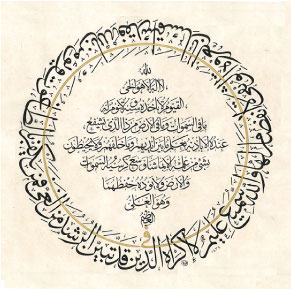 الله
لا إله إلا هو الحي
القيوم لا تأخذه سنة ولا نوم له
ما في السموات وما في الأرض من ذا الذي يشفع
عنده إلا بإذنه يعلم ما بين أيديهم وما خلفهم ولا يحيطون
بشيء من علمه إلا بما شاء وسع كرسيه السموات
والأرض ولا يؤده حفظهما
وهو العلي
العظيم
لا إكراه في الدين قد تبين الرشد من الغي فمن يكفر بالطاغوت ويؤمن بالله فقد استمسك بالعروة الوثقى لا انفصام لها والله سميع عليم